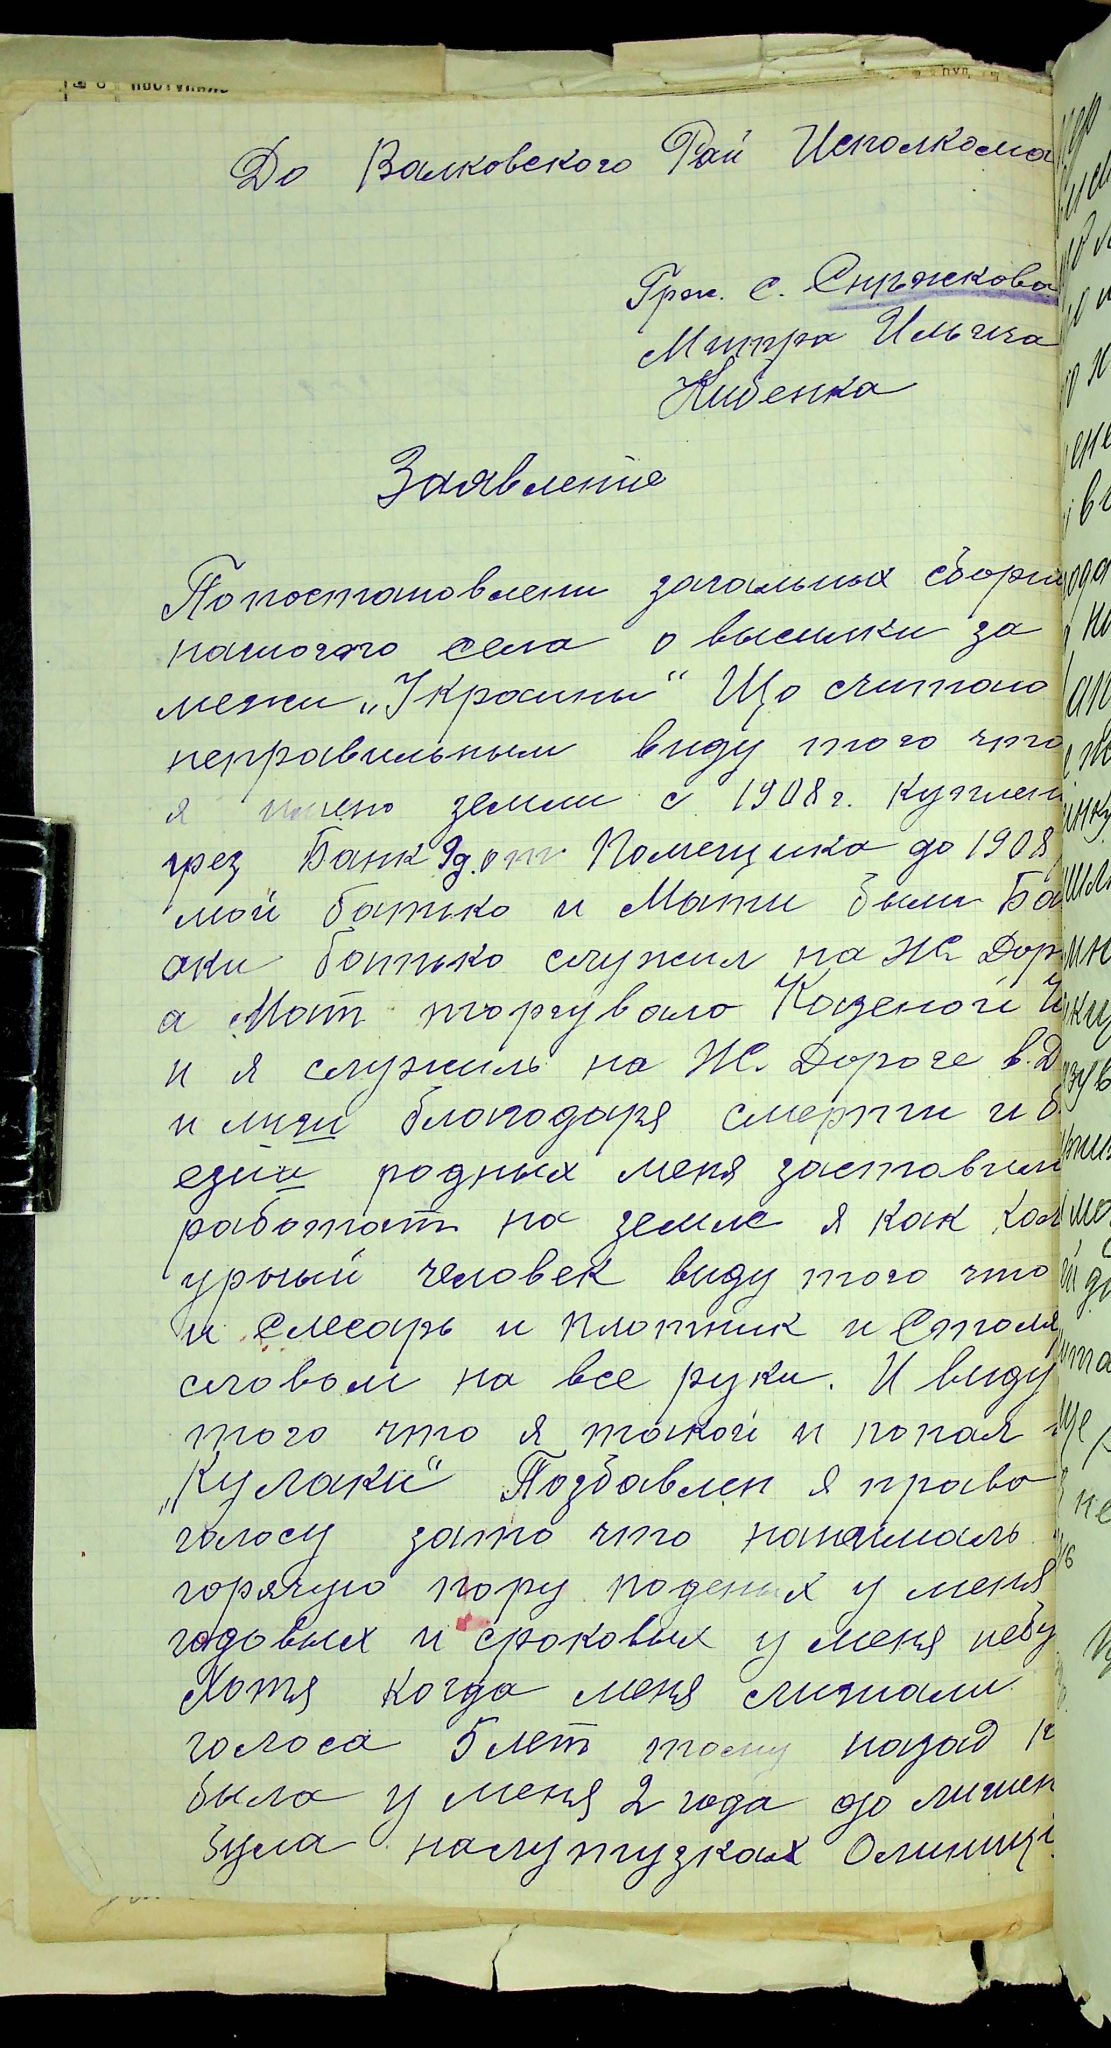 До Валковского Рай Исполкома
Грж. с. Снѣжкова
Митра Ильича
Кибенка
Заявление
Попостановлени загальных сборив
нашогого села о высилки за
межи „Украины" Що считаю
неправильным виду того что
я имею земли с 1908 г. куплен
чрез Банк 9д. от Помещика до 1908
мой батько и Мати были Ба
аки батько служил на Жѣ Дор
а Мат торгувала Казеной
и я служиль на Же. Дороге в. Д
и лиди благодаря смерти и б
езии родных меня заставили
работат на земле я как кол
урный человек виду того что
и слесарь и плотник и Столя
словом на все руки. И виду
того что я такой и попал
„Кулаки" Позбавлен я право
голосу зато что нанималь
горячую пору поденых у меня
годовых и сроковых у меня небу
Хотя когда меня лишали
голоса 5 лет тому назад
была у меня 2 года до лишен
була